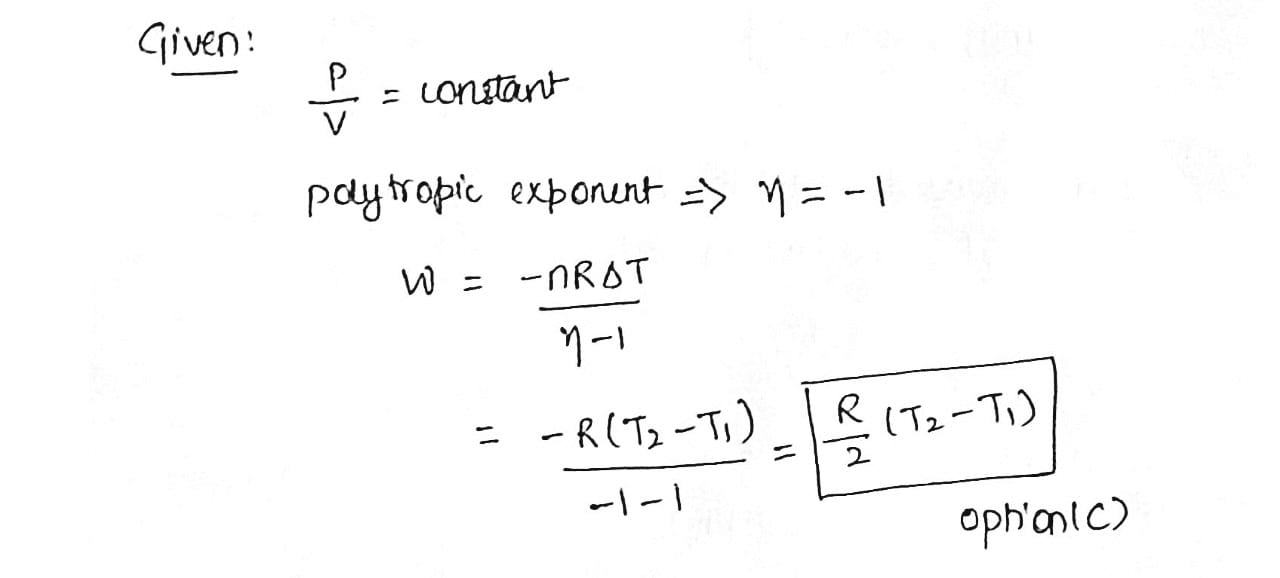 Given:
P/V = constant
polytropic exponent => η = -1
W = -nRΔT / η-1
= -R(T₂-T₁) / -1-1 = R/2 (T₂-T₁)
option(C)